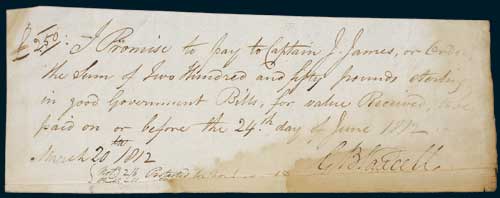 £250: I Promise to pay to Captain J. James, or Order
the Sum of Two Hundred and fifty pounds sterling
in good Government Bills, for value Received, to be
paid on or before the 24th day of June 1812
March 20th 1812